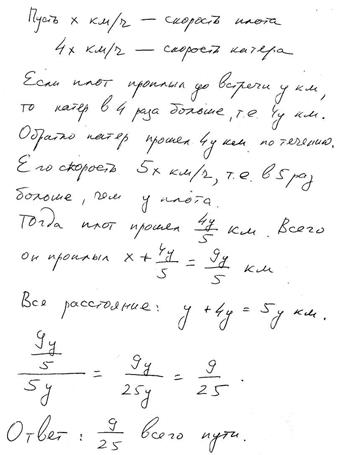 Пусть x км/ч — скорость плота
4x км/ч — скорость катера
Если плот проплыл до встречи y км,
то катер в 4 раза больше, т.е. 4y км.
Обратно катер прошел 4y км по течению.
Его скорость 5x км/ч, т.е. в 5 раз
больше, чем у плота.
Тогда плот прошел 4y/5 км. Всего
он проплыл x + 4y/5 = 9y/5 км
Все расстояние: y + 4y = 5y км.
(9y/5)/5y = 9y/25y = 9/25.
Ответ: 9/25 всего пути.